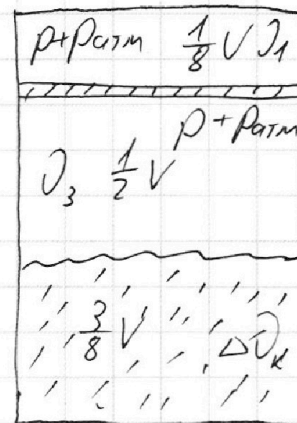 p+pатм 1/8 V ϑ₁
p+pатм
ϑ₃ 1/2 V
3/8 V Δϑₖ